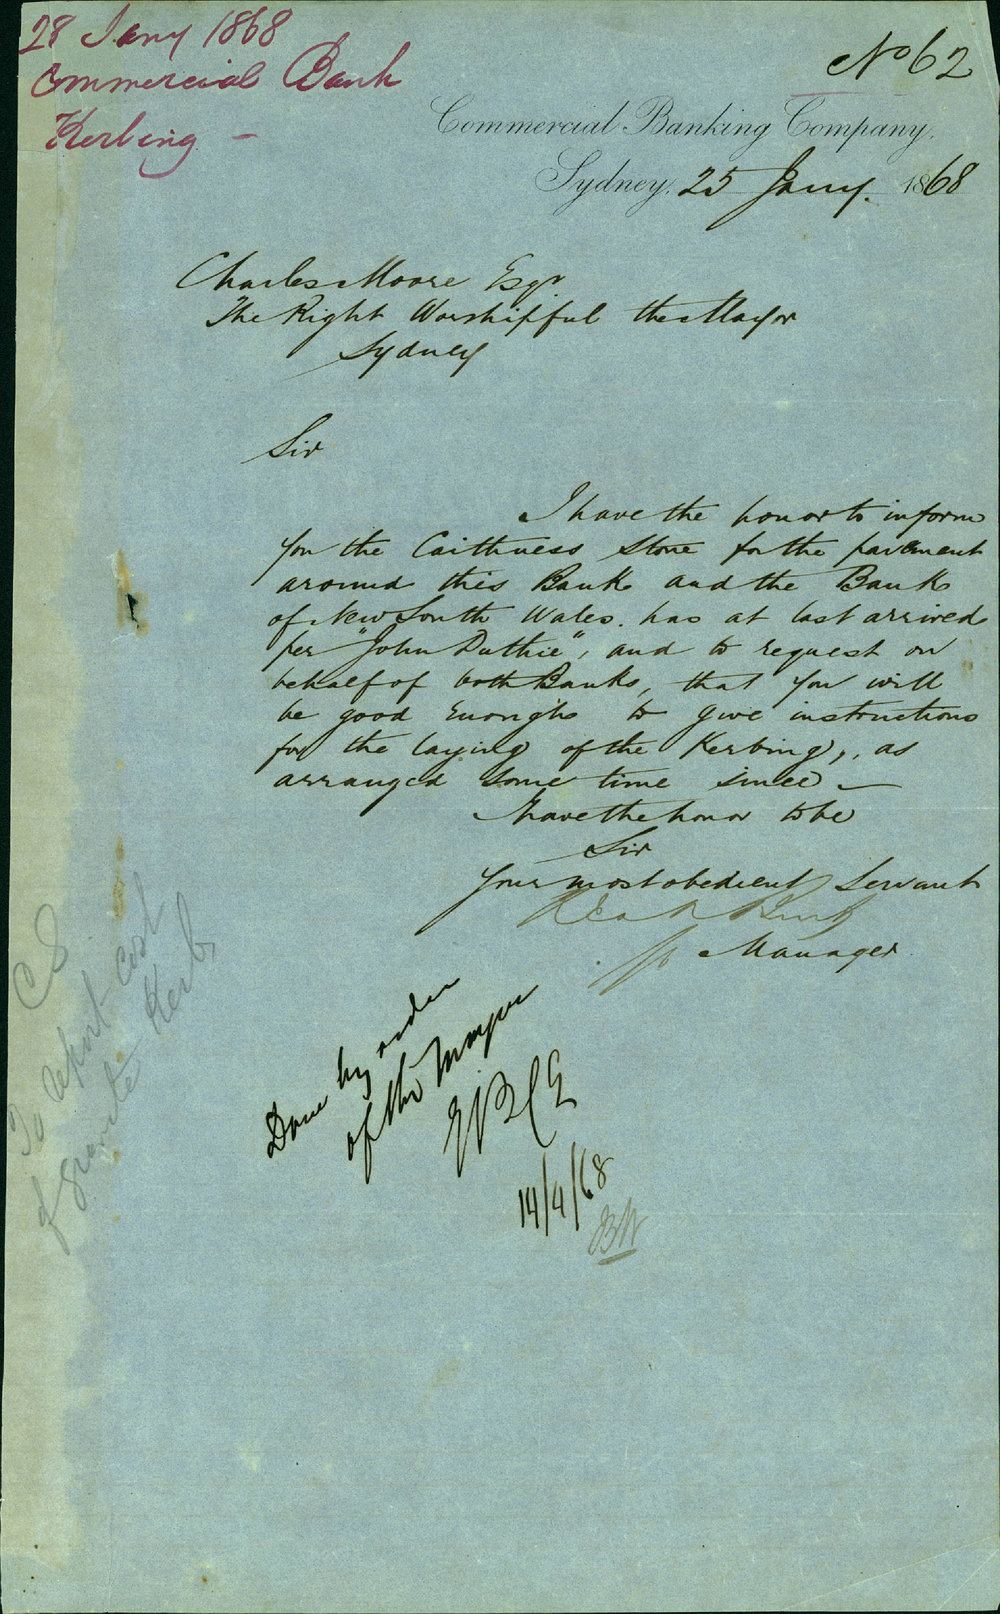 28 Jany 1868
Commercial Bank
Kerbing -
No 62
Commercial Banking Company.
Sydney, 25 Jany. 1868
Charles Moore Esqr
The Right Worshipful the Mayor
Sydney
Sir
I have the honor to inform
you the Caithness Stone for the pavement
around this Bank and the Bank
of New South Wales. has at last arrived
per "John Duthie", and to request on
behalf of both Banks, that you will
be good Enough to give instructions
for the laying of the Kerbing, as
arranged some time since -
I have the honor to be
Sir
Your most obedient Servant
Manager
CS
To report cost
of granite Kerb,
Done by order
of the Mayor
14/4/68